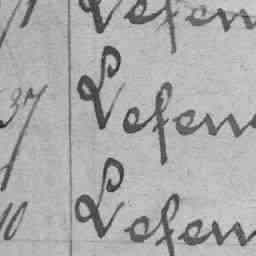 Lefen
37 Lefen
10 Lefen